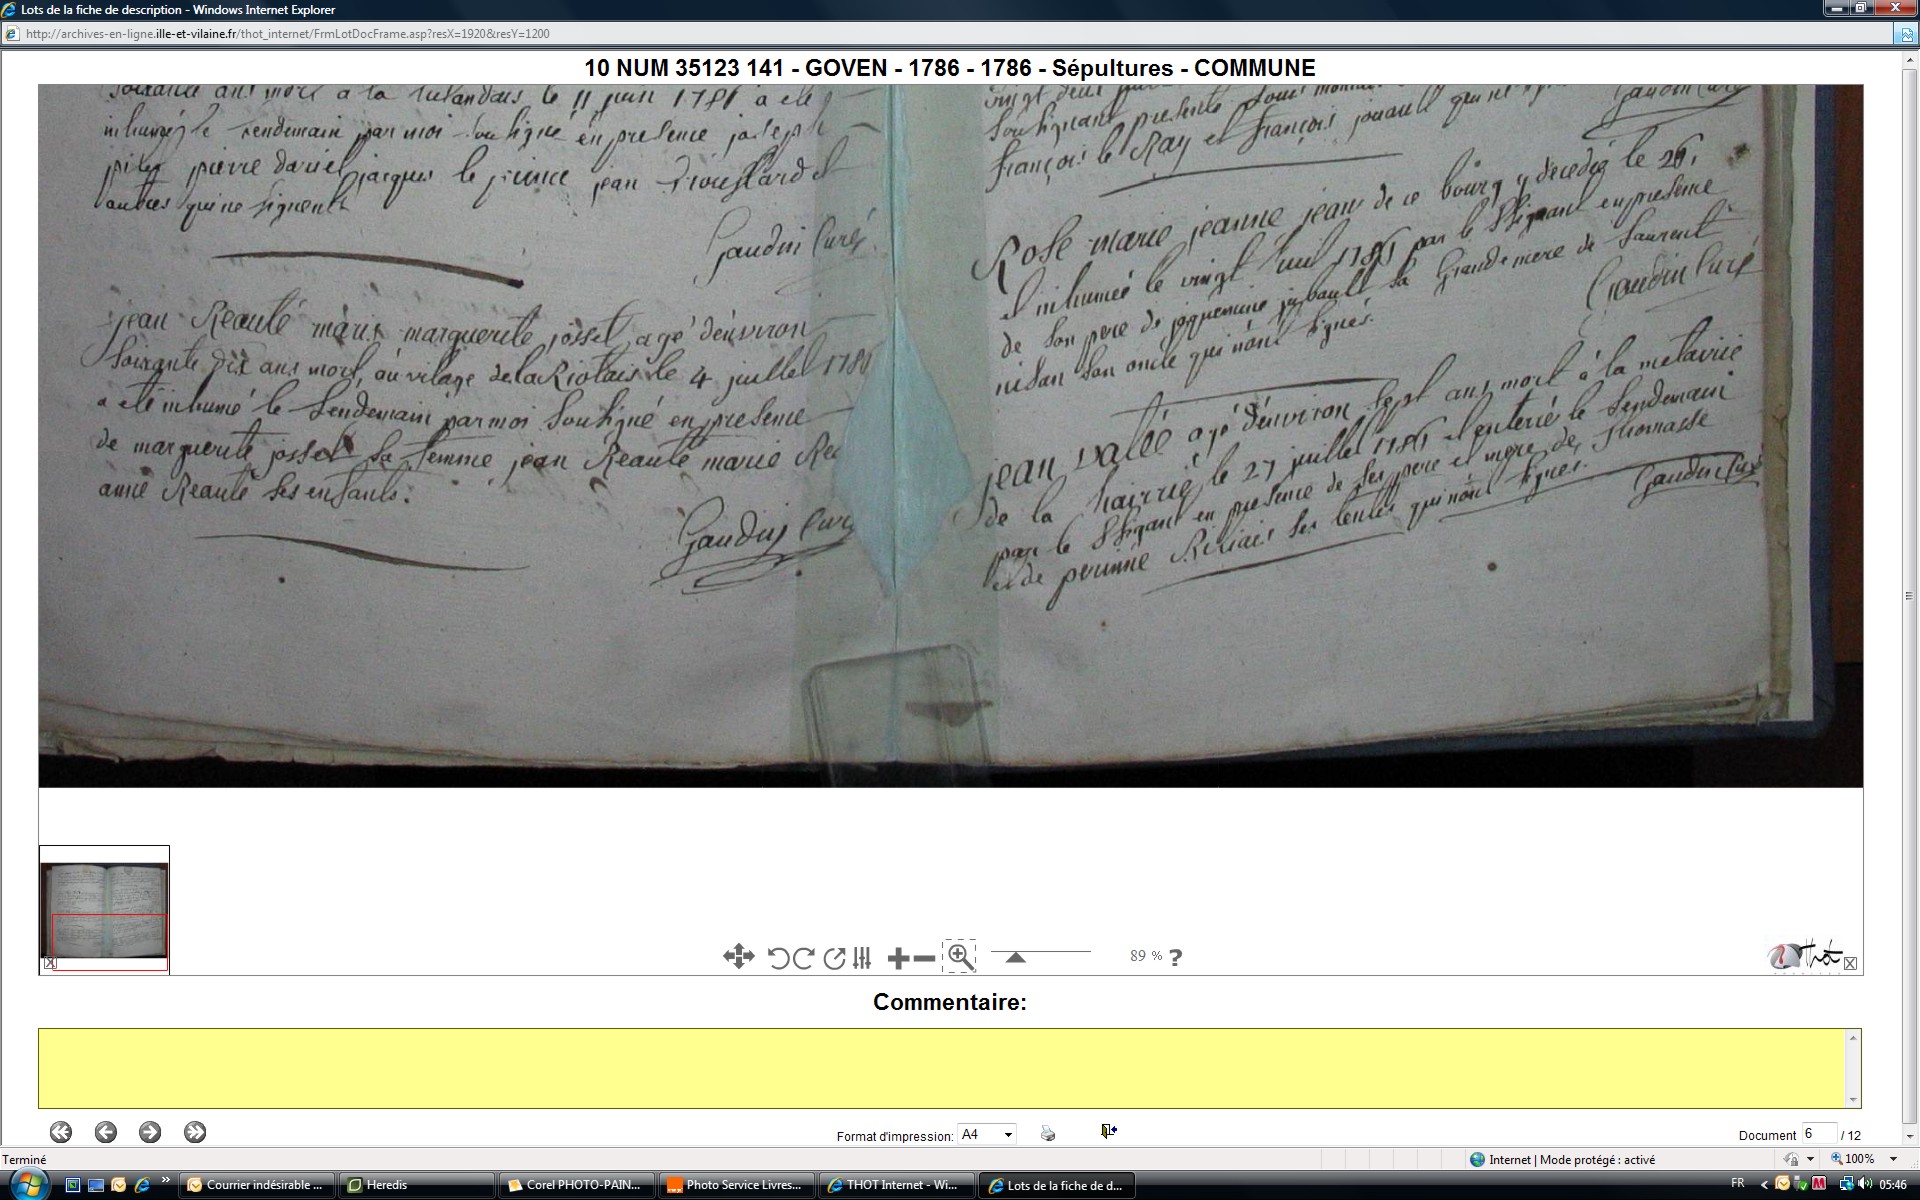 Lots de la fiche de description - Windows Internet Explorer
http://archives-en-ligne.ille-et-vilaine.fr/thot_internet/FrmLotDocFrame.asp?resX=1920&resY=1200
10 NUM 35123 141 - GOVEN - 1786 - 1786 - Sépultures - COMMUNE
soixante ans mort a la le 11 juin 1786 a été
inhumé le lendemain par moi souligné en presence joseph
pierre dariel jacques le prince jean et
autres qui ne signent
Gaudin Curé
jean Reauté maris marguerite josset agé dénviron
soixante dix ans mort, au vilage de la Riotais le 4 juillet 1786
a eté inhumé le lendemain par moi souligné en presence
de marguerite josset sa femme jean Reauté marie
anne Reauté ses enfants.
Gaudin Curé
vingt deux
soulignant presents
françois le Ray et françois jouault qui ne
Gaudin Curé
Rose marie jeanne jean de ce bourg y decedée le 26,
et inhumée le vingt 1786 par le Ssignant en presence
de son pere de jaquemine sa Grande mere de laurent
son oncle qui nont signés.
Gaudin Curé
jean vallé agé dénviron sept ans mort à la metairie
de la le 27 juillet 1786 et enterré le lendemain
par le Ssignant en presence de ses pere et mere de Thomasse
et de perinne ses tentes qui nont signés.
Gaudin Curé
89 % ?
Thot
Commentaire:
Format d'impression: A4
Document 6 / 12
Terminé
Internet | Mode protégé : activé
100%
Courrier indésirable ...
Heredis
Corel PHOTO-PAIN...
Photo Service Livres...
THOT Internet - Wi...
Lots de la fiche de d...
FR
05:46